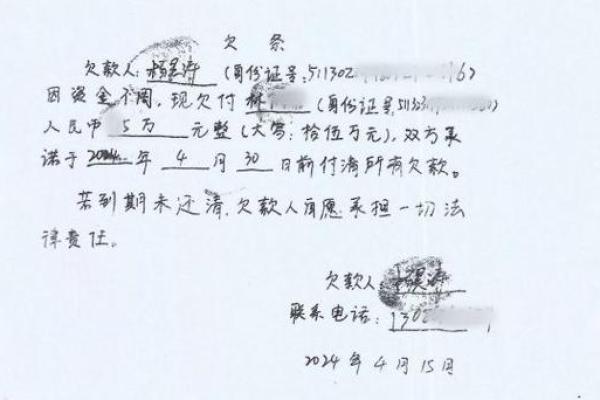 欠条
欠款人:杨昊涛(身份证号:511302 96)
因资金不周,现欠付林 (身份证号,5113
人民币 5万 元整(大写:拾伍万元),双方承
诺于2024年4月30日前付清所有欠款。
若到期未还清,欠款人自愿承担一切法
律责任。
欠款人:杨昊涛
联系电话:1302
2024年4月15日